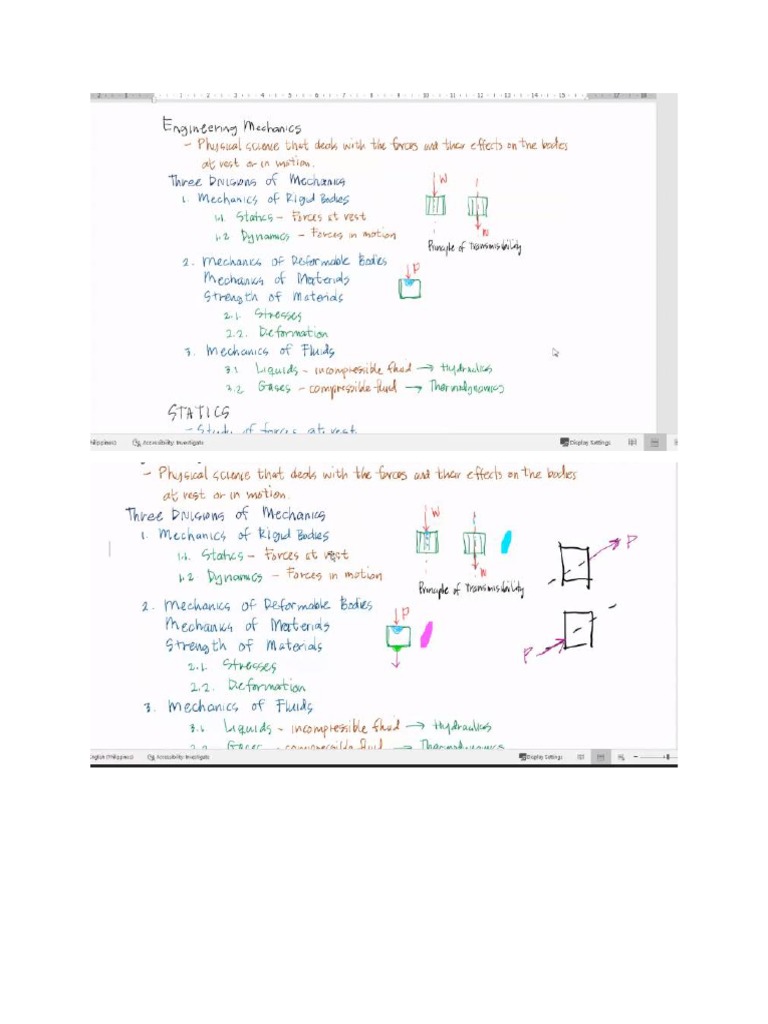 Engineering Mechanics
- Physical science that deals with the forces and their effects on the bodies
at rest or in motion.
Three Divisions of Mechanics
1. Mechanics of Rigid Bodies
1.1 Statics - Forces at rest
1.2 Dynamics - Forces in motion
W
W
Principle of Transmissibility
2. Mechanics of Deformable Bodies
Mechanics of Materials
Strength of Materials
P
2.1. Stresses
2.2. Deformation
3. Mechanics of Fluids
3.1 Liquids - incompressible fluid → Hydraulics
3.2 Gases - compressible fluid → Thermodynamics
STATICS
- Study of forces at rest
Accessibility: Investigate
Display Settings
- Physical science that deals with the forces and their effects on the bodies
at rest or in motion.
Three Divisions of Mechanics
1. Mechanics of Rigid Bodies
1.1 Statics - Forces at rest
1.2 Dynamics - Forces in motion
W
W
Principle of Transmissibility
P
P
2. Mechanics of Deformable Bodies
Mechanics of Materials
Strength of Materials
P
2.1. Stresses
2.2. Deformation
3. Mechanics of Fluids
3.1 Liquids - incompressible fluid → Hydraulics
3.2 Gases - compressible fluid → Thermodynamics
English (Philippines)
Accessibility: Investigate
Display Settings